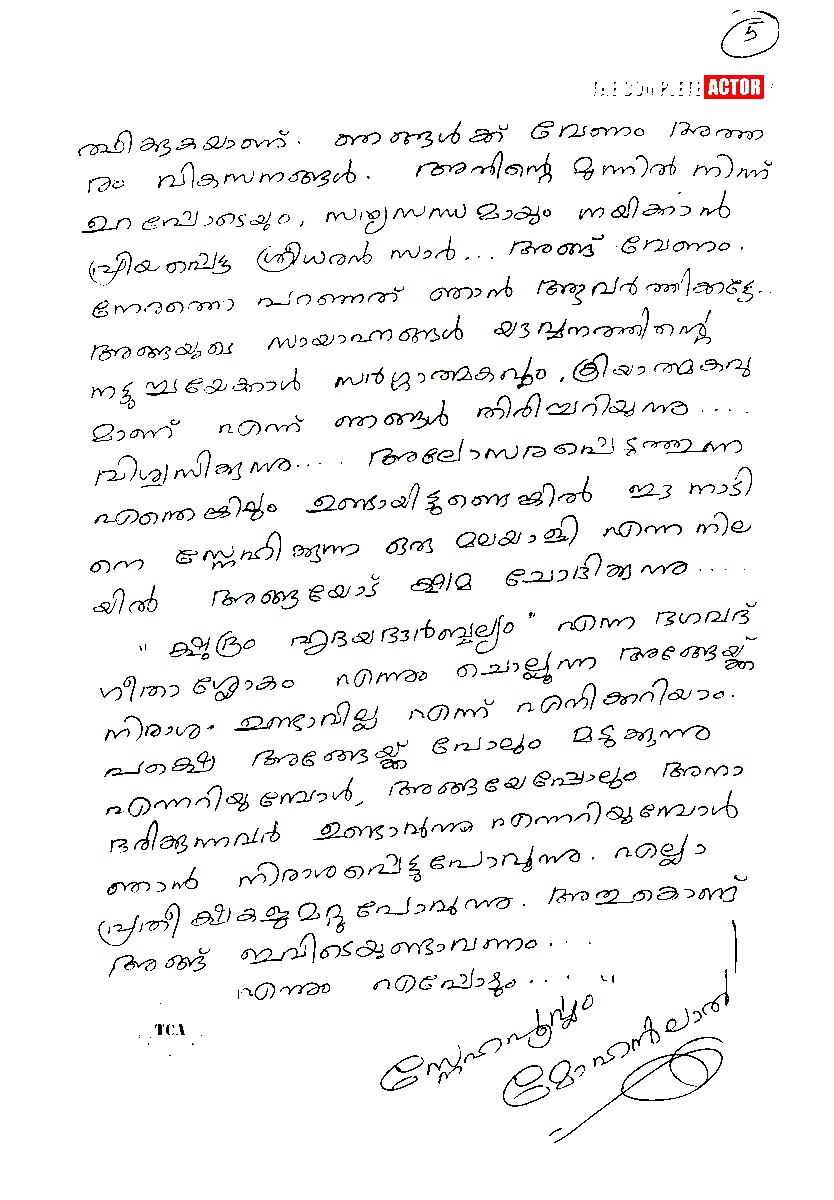 5
THE COMPLETE ACTOR
ത്ഥിക്കുകയാണ്. ഞങ്ങൾക്ക് വേണം അത്ത
രം വികസനങ്ങൾ. അതിന്റെ മുന്നിൽ നിന്ന്
ഉറപ്പോടെയും, സത്യസന്ധമായും നയിക്കാൻ
പ്രിയപ്പെട്ട ശ്രീധരൻ സാർ... അങ്ങ് വേണം.
നേരത്തെ പറഞ്ഞത് ഞാൻ ആവർത്തിക്കട്ടേ..
അങ്ങയുടെ സായാഹ്നങ്ങൾ യൗവ്വനത്തിന്റെ
നട്ടുച്ചയേക്കാൾ സർഗ്ഗാത്മകവും, ക്രിയാത്മകവു
മാണ് എന്ന് ഞങ്ങൾ തിരിച്ചറിയുന്നു....
വിശ്വസിക്കുന്നു.... അലോസരപ്പെടുത്തുന്ന
എന്തെങ്കിലും ഉണ്ടായിട്ടുണ്ടെങ്കിൽ ഈ നാടി
നെ സ്നേഹിക്കുന്ന ഒരു മലയാളി എന്ന നില
യിൽ അങ്ങയോട് ക്ഷമ ചോദിക്കുന്നു....
"ക്ഷുദ്രം ഹൃദയദൗർബ്ബല്യം" എന്ന ഭഗവദ്
ഗീതാ ശ്ലോകം എന്നും ചൊല്ലുന്ന അങ്ങേയ്ക്ക്
നിരാശ ഉണ്ടാവില്ല എന്ന് എനിക്കറിയാം.
പക്ഷെ അങ്ങേയ്ക്ക് പോലും മടുക്കുന്നു
എന്നറിയുമ്പോൾ, അങ്ങയേപ്പോലും അനാ
ദരിക്കുന്നവർ ഉണ്ടാവുന്നു എന്നറിയുമ്പോൾ
ഞാൻ നിരാശപ്പെട്ടുപോവുന്നു. എല്ലാ
പ്രതീക്ഷകളുമറ്റു പോവുന്നു. അതുകൊണ്ട്
അങ്ങ് ഇവിടെയുണ്ടാവണം...
എന്നും എപ്പോഴും...."
സ്നേഹപൂർവ്വം
മോഹൻലാൽ
TCA